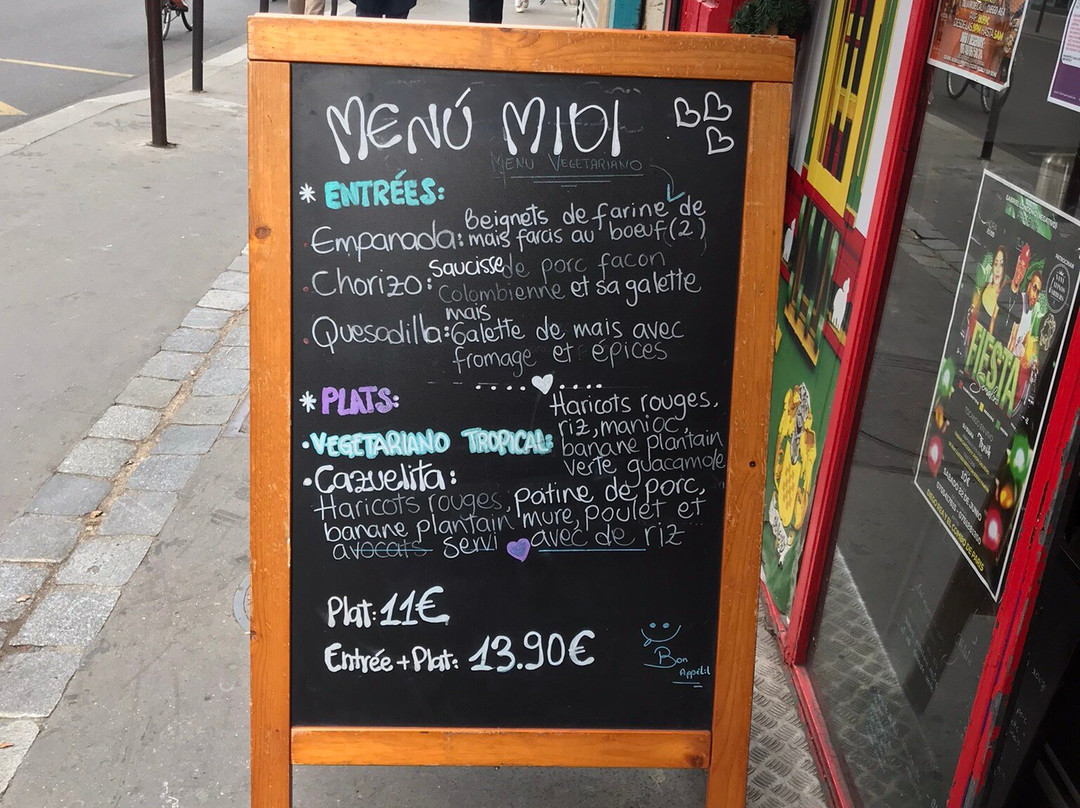 MENÚ MIDI
MENU VEGETARIANO
* ENTRÉES:
Empanada: Beignets de farine de
mais farcis au boeuf (2)
Chorizo: saucisse de porc facon
Colombienne et sa galette
mais
Quesadilla: Galette de mais avec
fromage et épices
* PLATS:
• VEGETARIANO TROPICAL: Haricots rouges,
riz, manioc,
banane plantain
verte guacamole
• Cazuelita:
Haricots rouges, patine de porc,
banane plantain mure, poulet et
avocats servi avec de riz
Plat: 11€
Entrée + Plat: 13.90€
Bon
Appétit
FIESTA
10€
SABADO 22 DE JUNIO